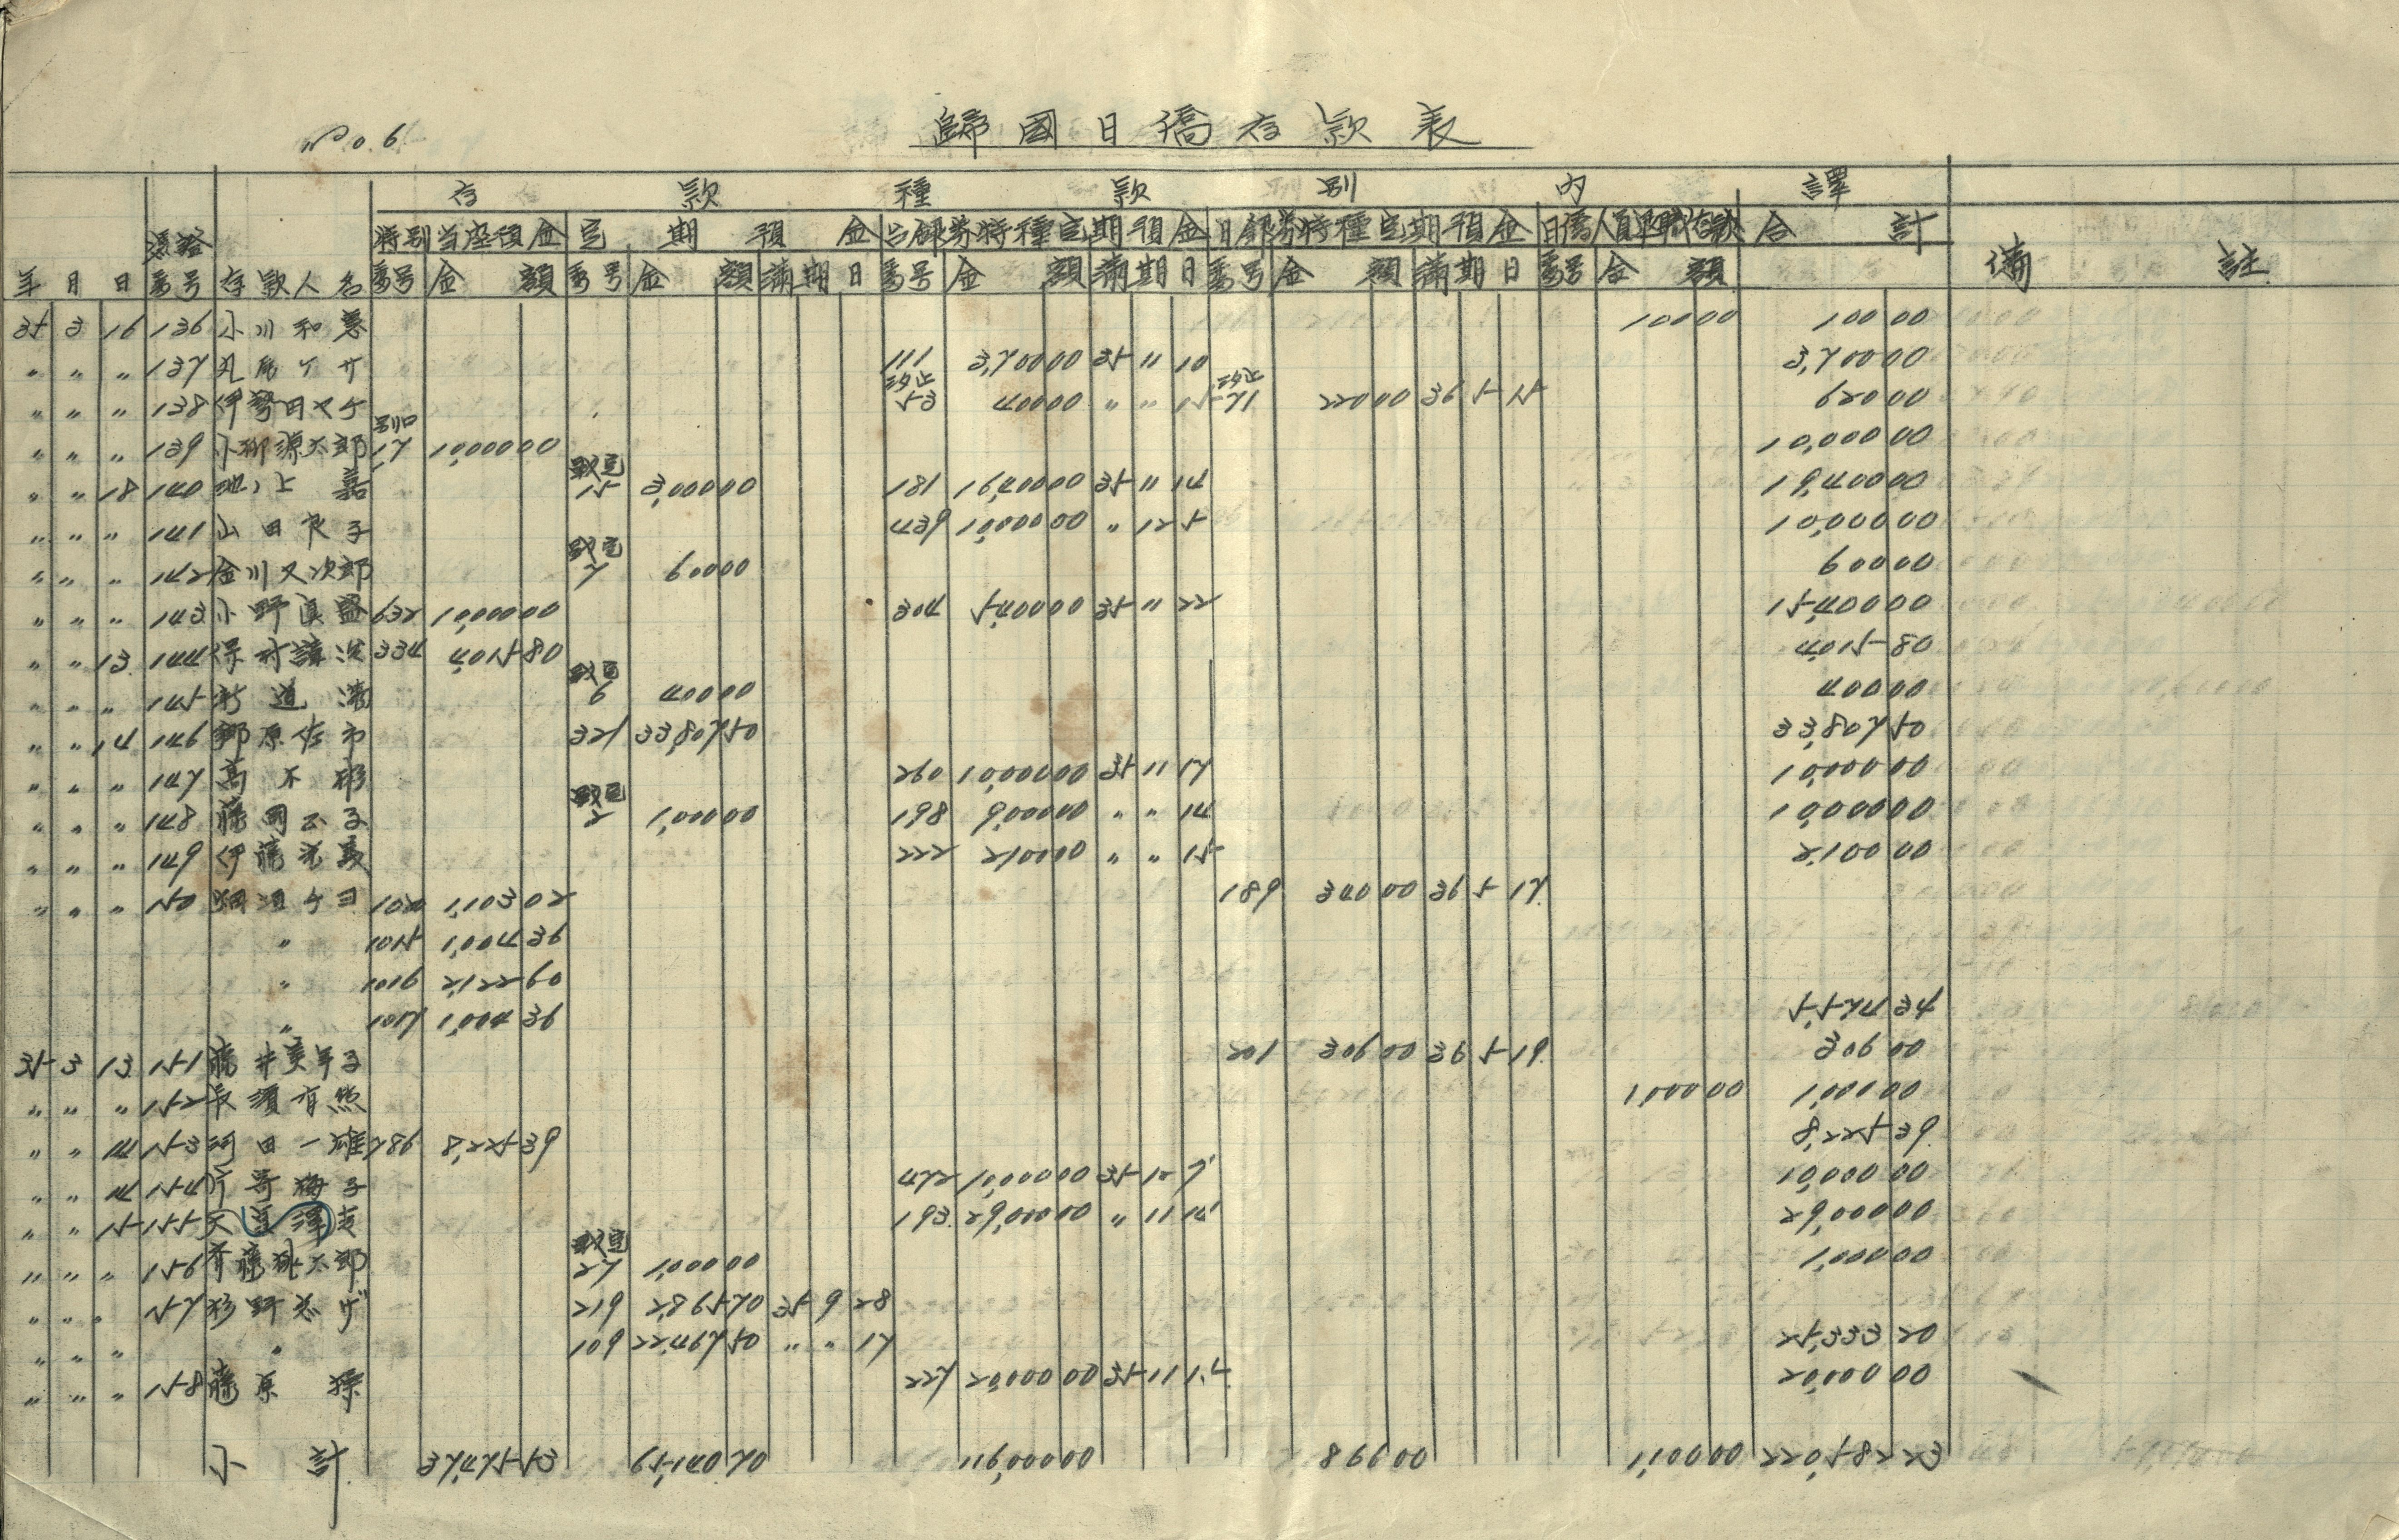 No. 6
歸國日僑存款表
存款種款別內譯
憑證 特別当座預金 定期預金 台銀券特種定期預金 日銀券特種定期預金 合計
年 月 日 番号 存款人名 番号 金額 番号 金額 満期日 番号 金額 満期日 番号 金額 満期日 番号 金額 備註
35 3 16 136 小川和 100 00 100 00
〃 〃 〃 137 丸尾 111 3,700 00 35 11 10 3,700 00
〃 〃 〃 138 伊勢田 53 400 00 〃 〃 15 71 220 00 36 5 15 620 00
〃 〃 〃 139 小柳源太郎 別口 17 10,000 00 10,000 00
〃 〃 18 140 池上嘉 戰定 15 3,000 00 181 16,400 00 35 11 14 19,400 00
〃 〃 〃 141 山田良子 439 10,000 00 〃 12 5 10,000 00
〃 〃 〃 142 金川又次郎 戰定 7 600 00 600 00
〃 〃 〃 143 小野真盛 632 10,000 00 304 5,400 00 35 11 22 15,400 00
〃 〃 13 144 334 4,015 80 4,015 80
〃 〃 〃 145 新道 戰定 6 400 00 400 00
〃 〃 14 146 郷原佐市 321 33,807 50 33,807 50
〃 〃 〃 147 高木 260 10,000 00 35 11 17 10,000 00
〃 〃 〃 148 藤岡子 戰定 2 1,000 00 198 9,000 00 〃 〃 14 10,000 00
〃 〃 〃 149 伊藤 222 2,100 00 〃 〃 15 2,100 00
〃 〃 〃 150 1,103 02 189 340 00 36 5 17
〃 1015 1,004 36
〃 1016 2,122 60
〃 1017 1,004 36 5,574 34
35 3 13 151 藤井美年子 201 306 00 36 5 19 306 00
〃 〃 〃 152 長須有 1,000 00 1,000 00
〃 〃 14 153 河田一雄 786 8,225 39 8,225 39
〃 〃 14 154 片寄梅子 472 10,000 00 35 12 7 10,000 00
〃 〃 15 155 193 29,000 00 〃 11 14 29,000 00
〃 〃 〃 156 齊藤太郎 戰定 27 1,000 00 1,000 00
〃 〃 〃 157 杉野 219 2,865 70 35 9 28
〃 〃 〃 〃 109 22,467 50 〃 〃 17 25,333 20
〃 〃 〃 158 藤原 227 20,000 00 35 11 14 20,000 00
小計 37,475 53 65,140 70 116,000 00 866 00 1,100 00 220,582 23